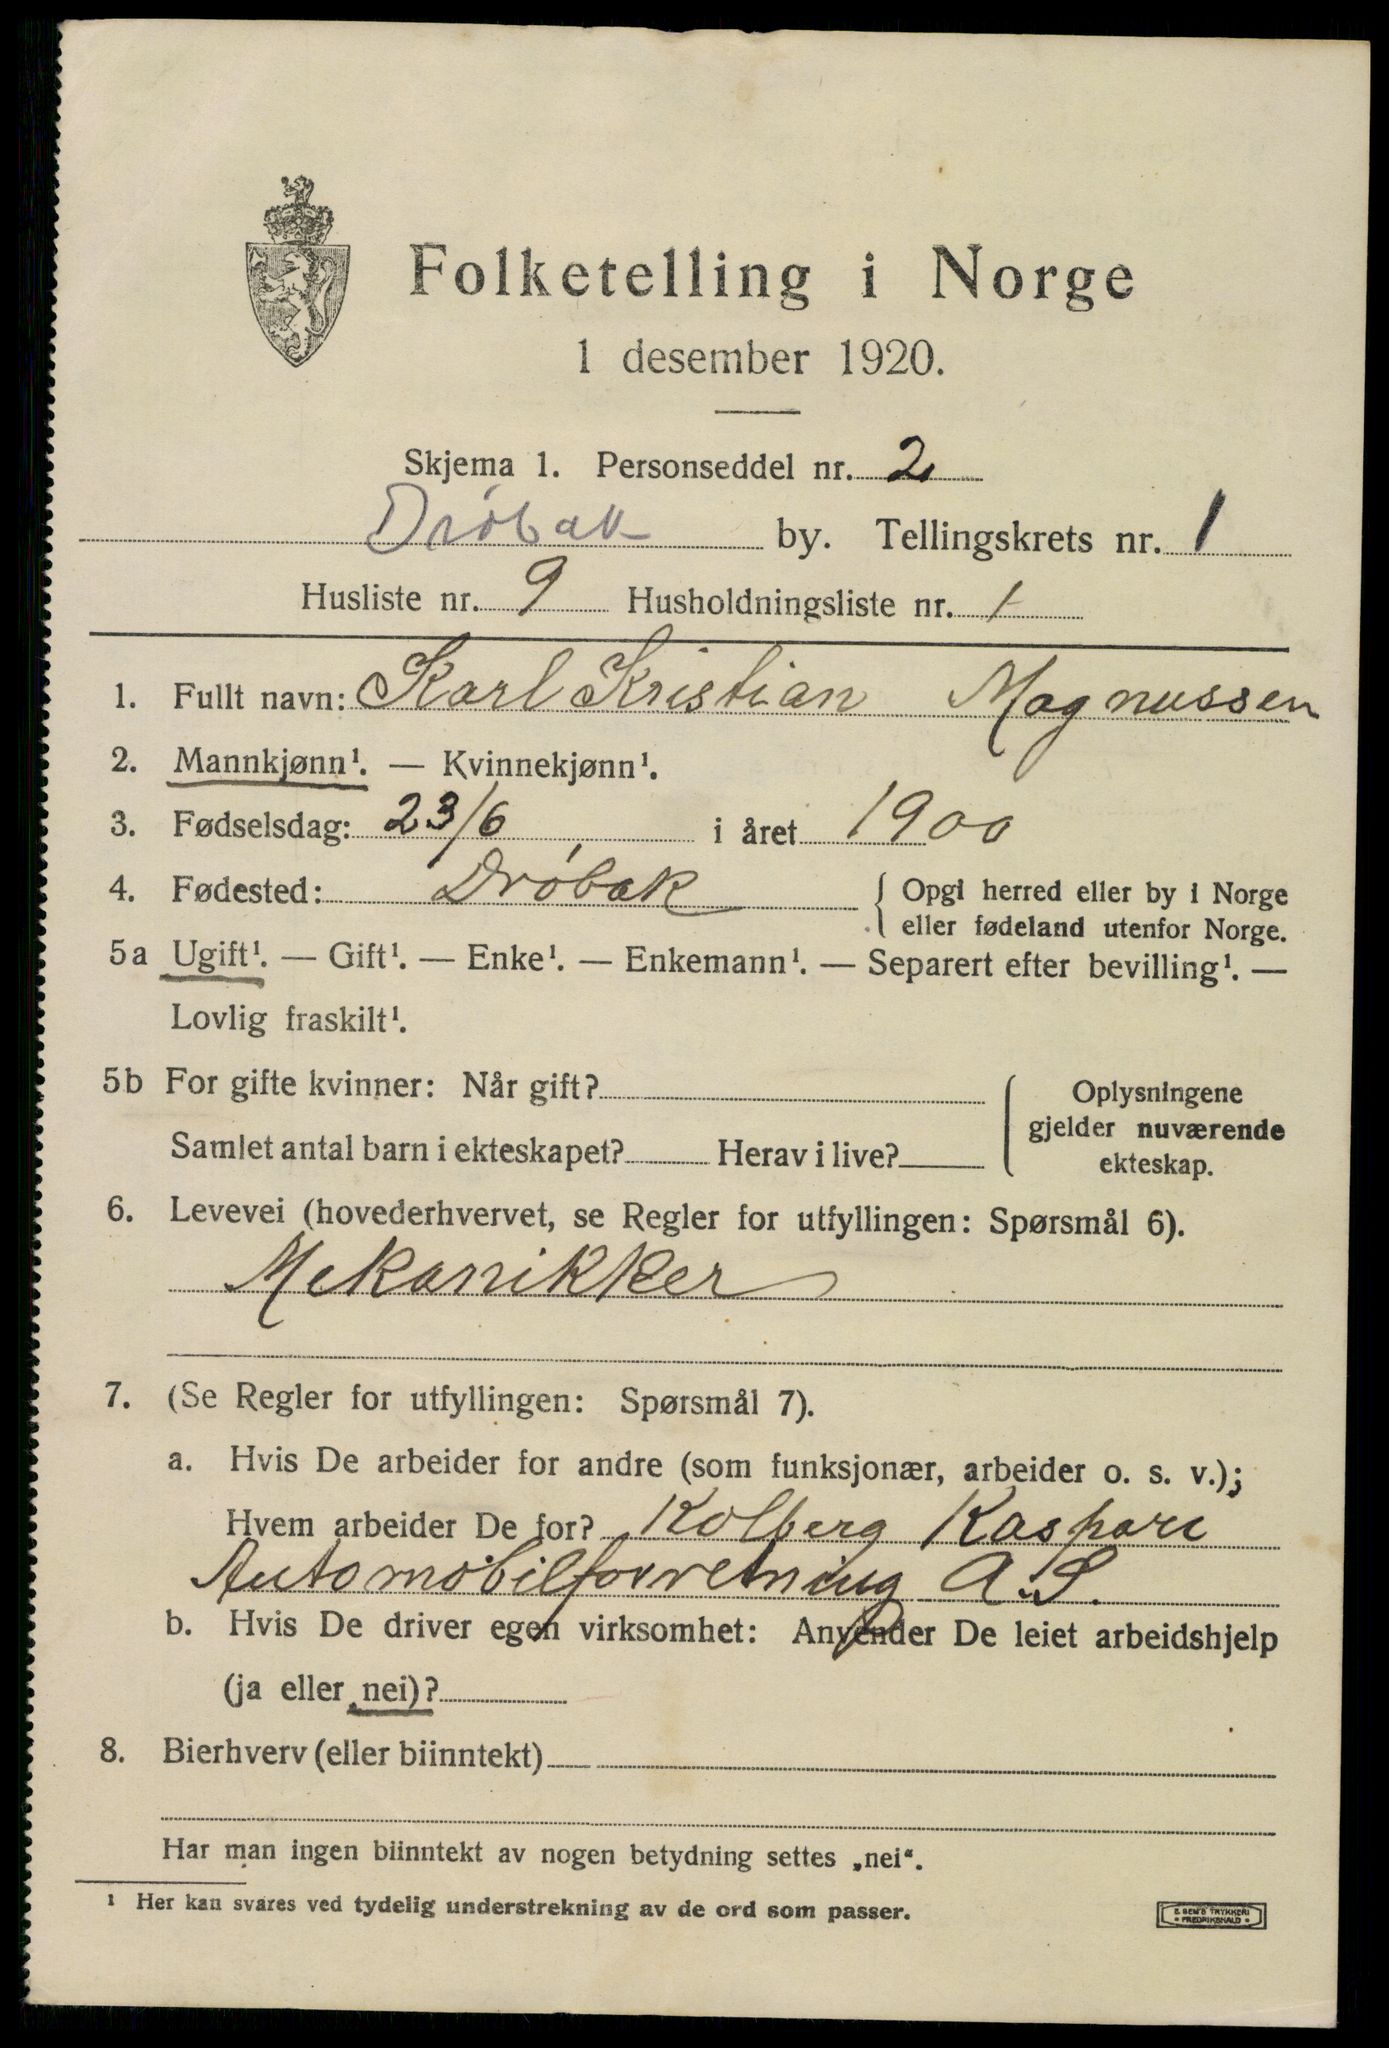 Folketelling i Norge
1 desember 1920.
Skjema 1. Personseddel nr. 2
Dröbak by. Tellingskrets nr. 1
Husliste nr. 9 Husholdningsliste nr. 1
1. Fullt navn: Karl Kristian Magnussen
2. Mannkjønn¹. — Kvinnekjønn¹.
3. Fødselsdag: 23/6 i året 1900
4. Fødested: Dröbak { Opgi herred eller by i Norge
eller fødeland utenfor Norge.
5a Ugift¹. — Gift¹. — Enke¹. — Enkemann¹. — Separert efter bevilling¹. —
Lovlig fraskilt¹.
5b For gifte kvinner: Når gift?
Samlet antal barn i ekteskapet? Herav i live?
Oplysningene
gjelder nuværende
ekteskap.
6. Levevei (hovederhvervet, se Regler for utfyllingen: Spørsmål 6).
Mekanikker
7. (Se Regler for utfyllingen: Spørsmål 7).
a. Hvis De arbeider for andre (som funksjonær, arbeider o. s. v.);
Hvem arbeider De for? Kolberg Kaspare
Automobilforretning A.S.
b. Hvis De driver egen virksomhet: Anvender De leiet arbeidshjelp
(ja eller nei)?
8. Bierhverv (eller biinntekt)
Har man ingen biinntekt av nogen betydning settes „nei".
¹ Her kan svares ved tydelig understrekning av de ord som passer.
E. SEM'S TRYKKERI
• FREDRIKSHALD •